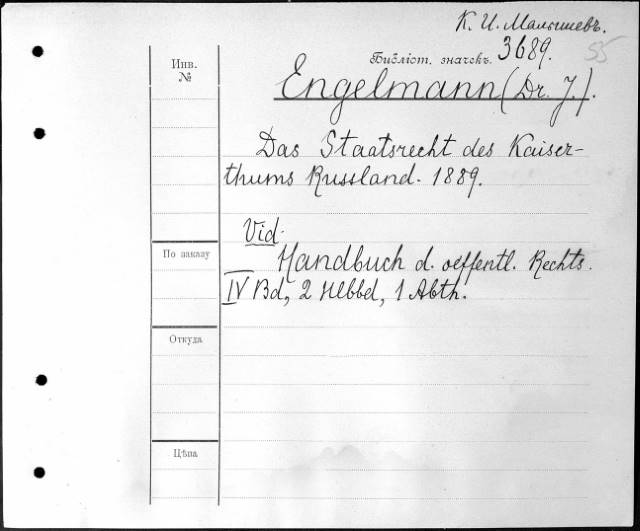 К. И. Малышевъ.
55
Инв.
№
Библіот. значекъ. 3689.
Engelmann (Dr. J.).
Das Staatsrecht des Kaiser-
thums Russland. 1889.
Vid.
Handbuch d. oeffentl. Rechts.
IV Bd, 2 Hlbbd, 1 Abth.
По заказу
Откуда
Цѣна